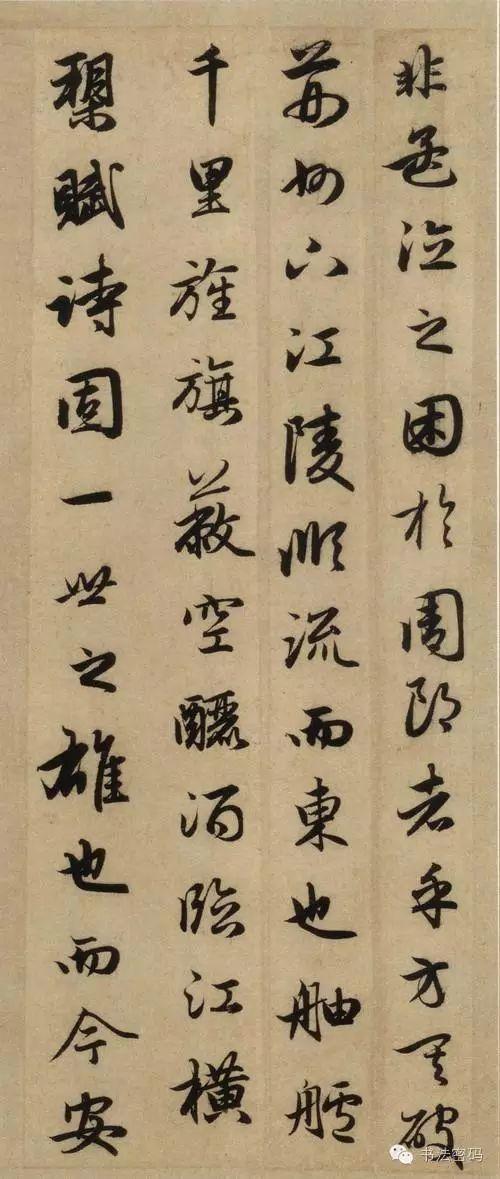 非孟德之困於周郎者乎方其破
荊州下江陵順流而東也舳艫
千里旌旗蔽空釃酒臨江橫
槊賦詩固一世之雄也而今安
书法密码